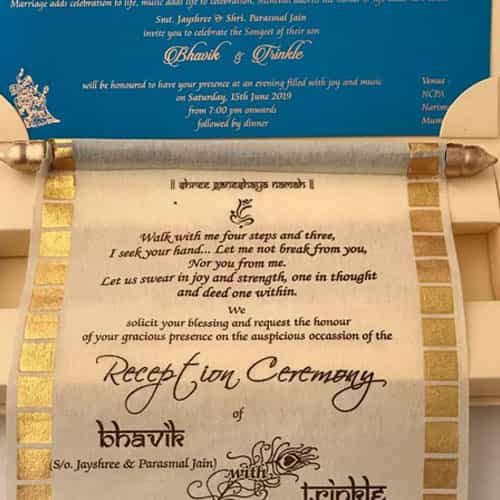 Marriage adds celebration to life, music adds life to celebration,
Smt. Jayshree & Shri. Parasmal Jain
invite you to celebrate the Sangeet of their son
Bhavik & Trinkle
will be honoured to have your presence at an evening filled with joy and music
on Saturday, 15th June 2019
from 7:00 pm onwards
followed by dinner
Venue :
NCPA
Narim
Mum
|| shree ganeshaya namah ||
Walk with me four steps and three,
I seek your hand... Let me not break from you,
Nor you from me.
Let us swear in joy and strength, one in thought
and deed one within.
We
solicit your blessing and request the honour
of your gracious presence on the auspicious occassion of the
Reception Ceremony
of
bhavik
(S/o. Jayshree & Parasmal Jain)
with
trinkle